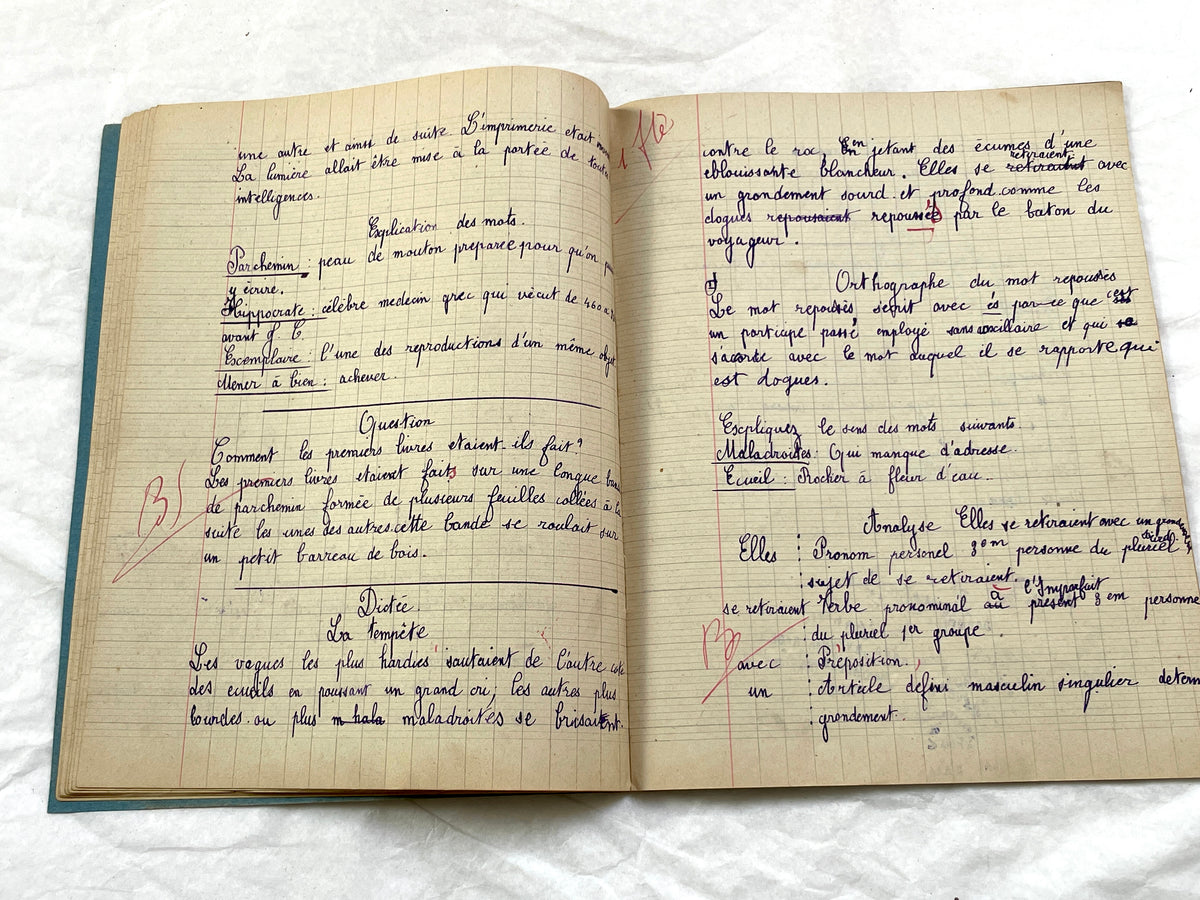 une autre et ainsi de suite. L'imprimerie etait
La lumière allait être mise à la portée de toutes
intelligences.
Explication des mots.
Parchemin : peau de mouton preparée pour qu'on
y écrire.
Hippocrate : célèbre medecin grec qui vècut de 460 a
avant J. C.
Escemplaire : l'une des reproductions d'un même objet
Mener à bien : achever.
Question
Comment les premiers livres etaient-ils fait?
Les premiers livres etaient faits sur une longue
de parchemin formée de plusieurs feuilles collées à la
suite les unes des autres.cette bande se roulait sur
un petit barreau de bois.
B
Dictée.
La tempête
Les vagues les plus hardies sautaient de l'autre coté
des ecueils en poussant un grand cri; les autres plus
lourdes ou plus maladroites se brisaient
1 fte
contre le roc, en jetant des écumes d'une
eblouissante blancheur. Elles se retiraient retiraient avec
un grondement sourd et profond comme les
dogues repousaient repoussés par le baton du
voyageur.
Orthographe du mot repoussés
Le mot repoussés secrit avec és par-ce que c'est
un participe passé employé sans auxcillaire et qui se
s'acorde avec le mot auquel il se rapporte qui
est dogues.
Escpliquez le sens des mots suivants
Maladroites : Qui manque d'adresse.
Ecueil : Rocher à fleur d'eau.
Analyse Elles se retiraient avec un grondement sourd.
Elles : Pronom personel 3em personne du pluriel
sujet de se retiraient.
se retiraient Verbe pronominal au présent à l'Imparfait 3em personne
du pluriel 1er groupe.
B
avec : Préposition.
un : Article défini masculin singulier determ
grondement.